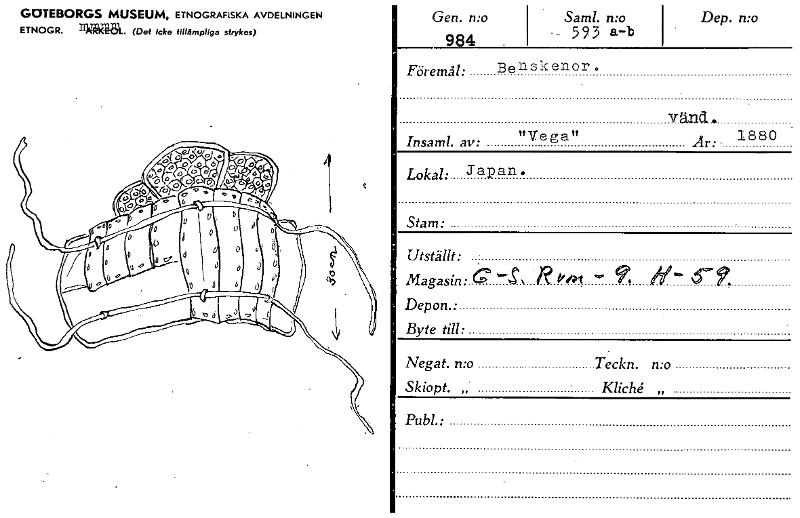 GÖTEBORGS MUSEUM, ETNOGRAFISKA AVDELNINGEN
ETNOGR. ARKEOL. (Det icke tillämpliga strykes)
30cm
Gen. n:o
984
Saml. n:o
593 a-b
Dep. n:o
Föremål: Benskenor.
vänd.
Insaml. av: "Vega" År: 1880
Lokal: Japan.
Stam:
Utställt:
Magasin: G-S. Rum - 9. H-59.
Depon.:
Byte till:
Negat. n:o Teckn. n:o
Skiopt. „ Kliché „
Publ.: